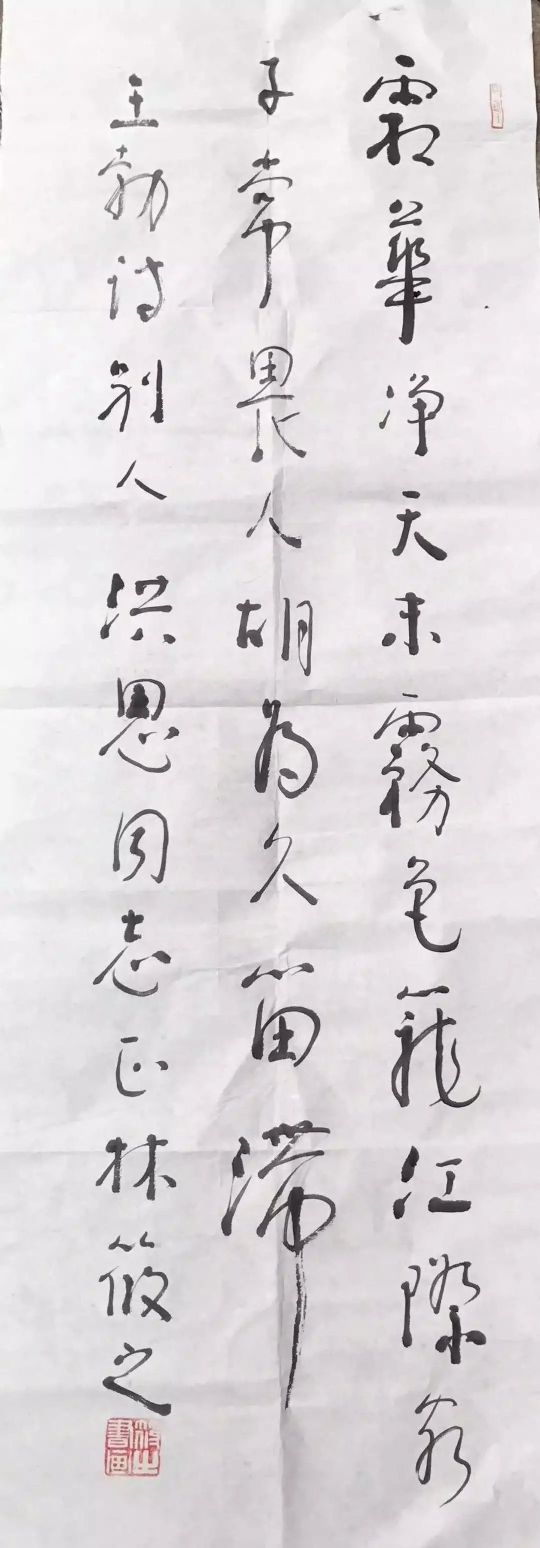 霜華净天末霧色籠江際客
子常畏人胡為久留滯
王勃诗别人 洪恩同志正 林筱之